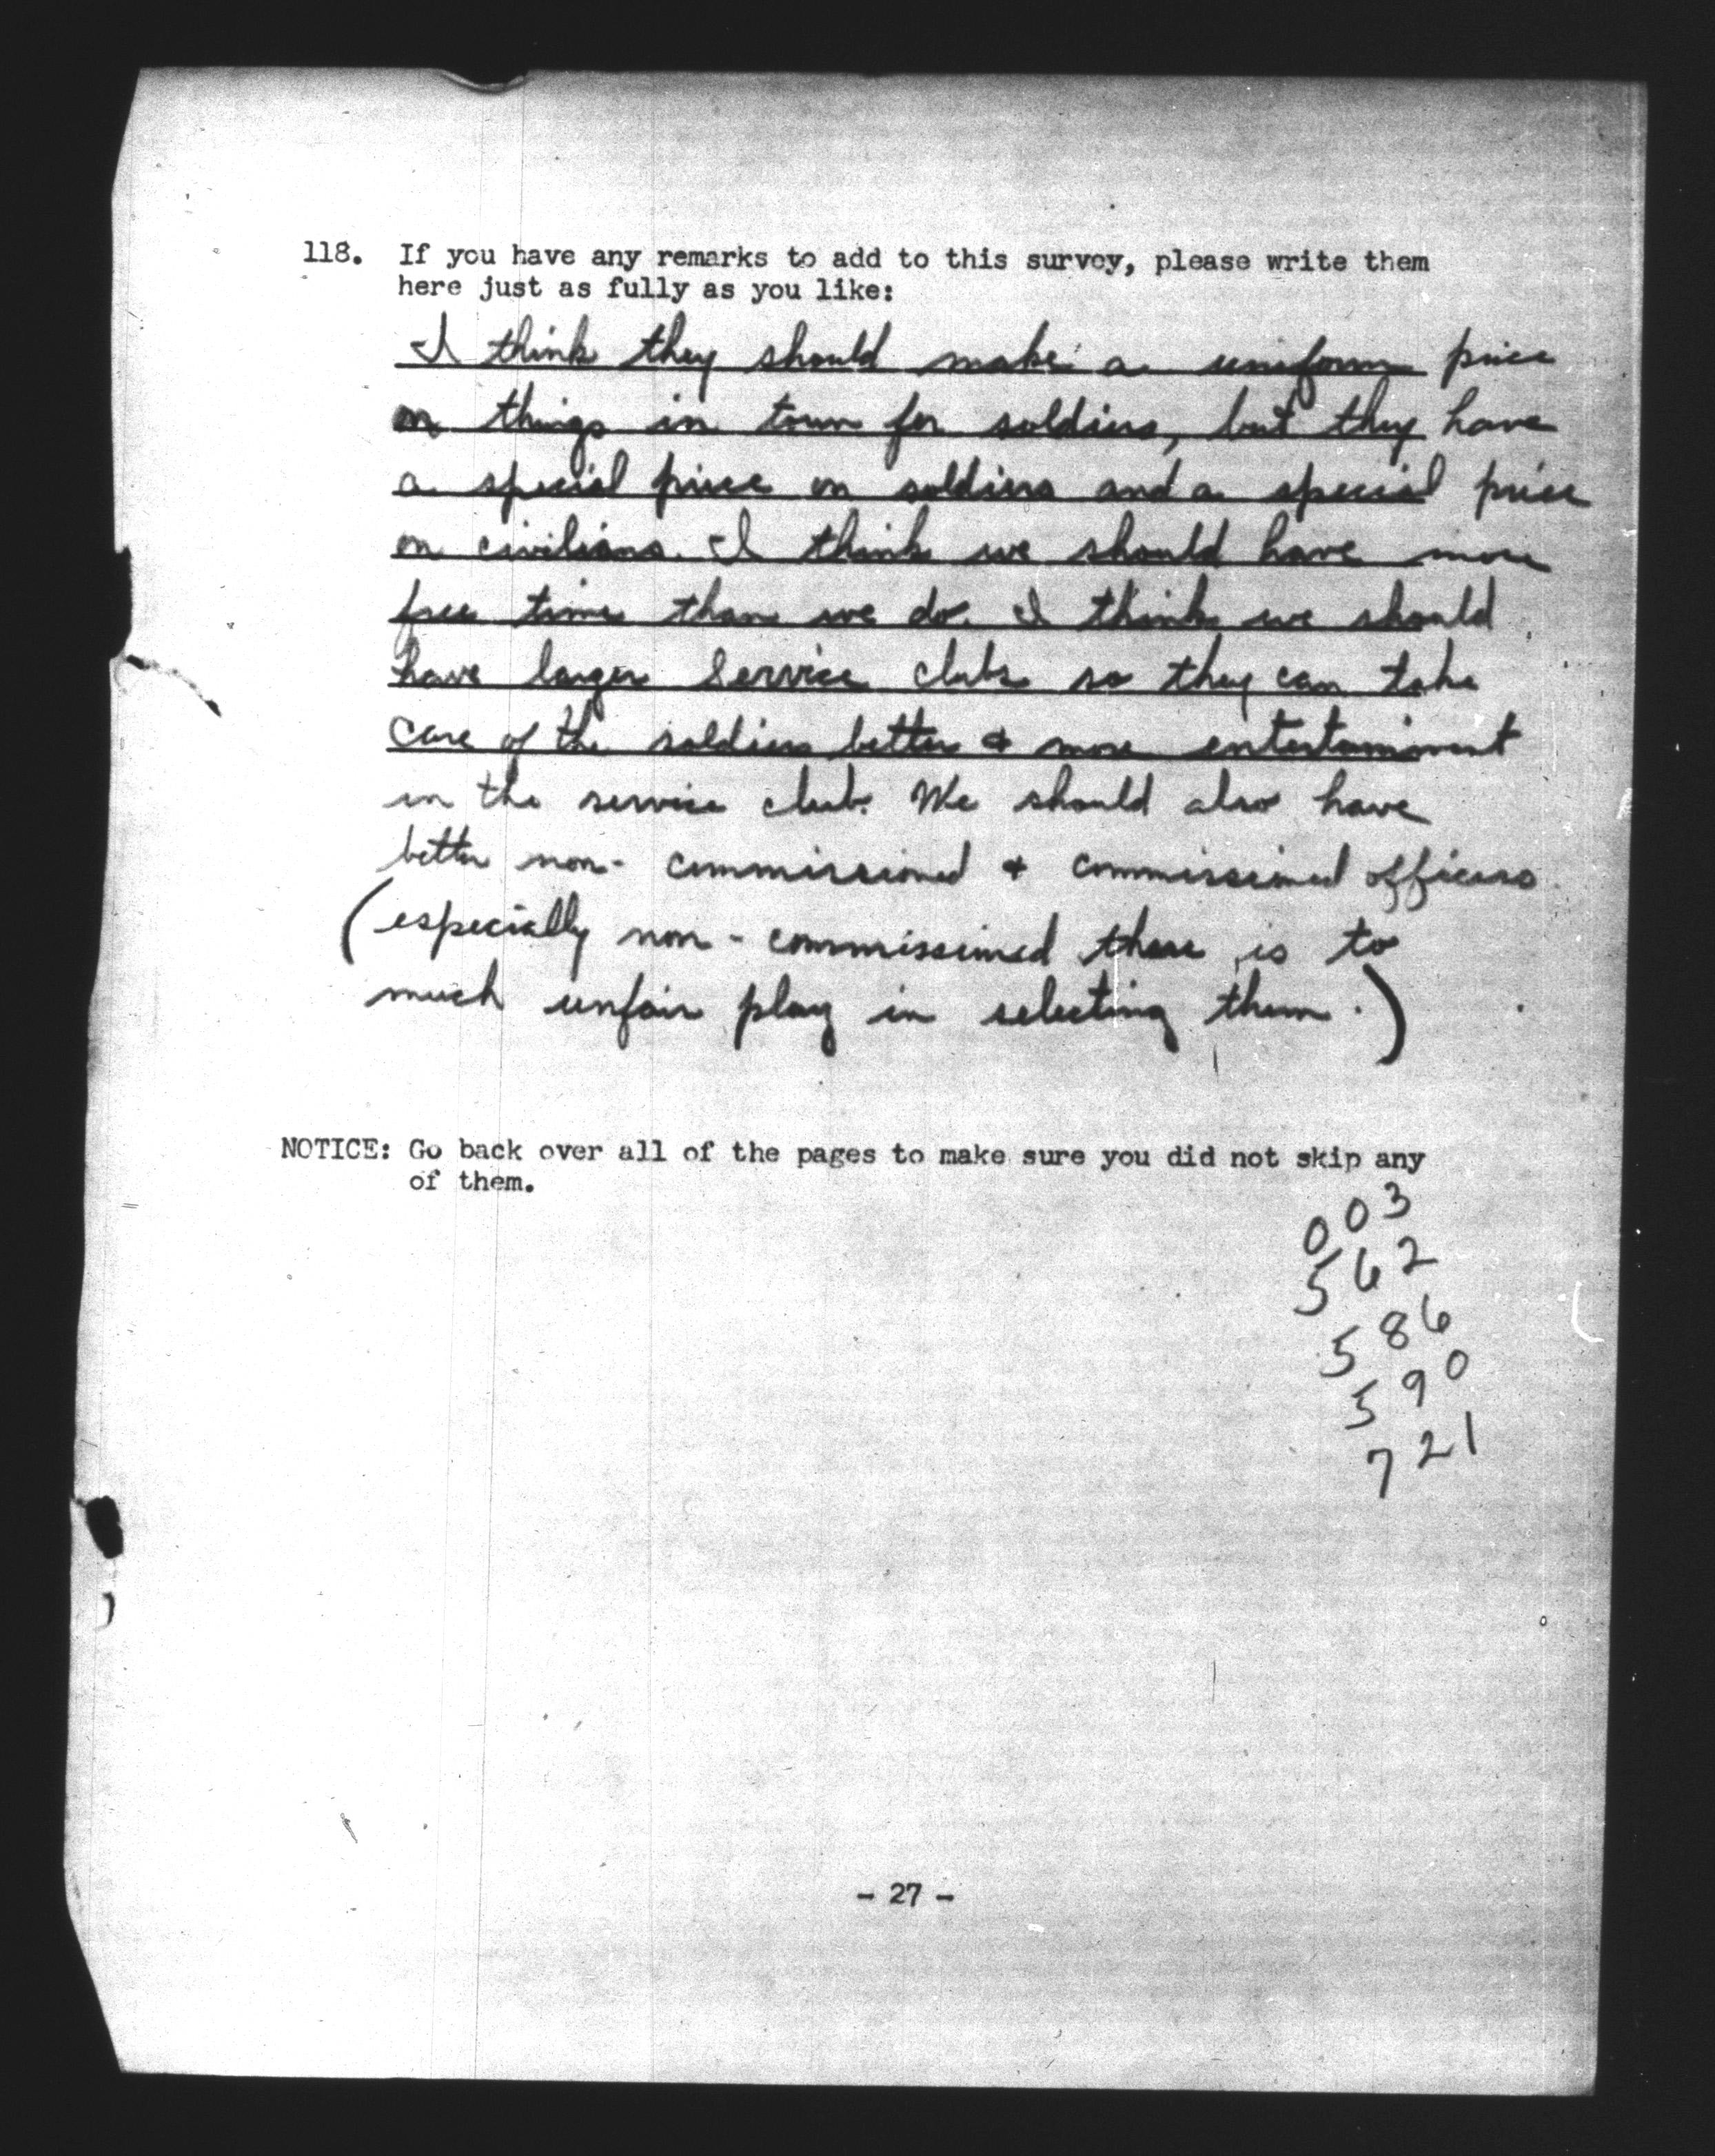 118. If you have any remarks to add to this survey, please write them
here just as fully as you like:
I think they should make a uniform price
on things in town for soldiers, but they have
a special price on soldiers and a special price
on civilians. I think we should have more
free time than we do. I think we should
have larger Service clubs so they can take
care of the soldiers better & more entertainment
in the service club. We should also have
better non-commissioned & commissioned officers
(especially non-commissioned there is to
much unfair play in selecting them.)
NOTICE: Go back over all of the pages to make sure you did not skip any
of them.
003
562
586
590
721
- 27 -